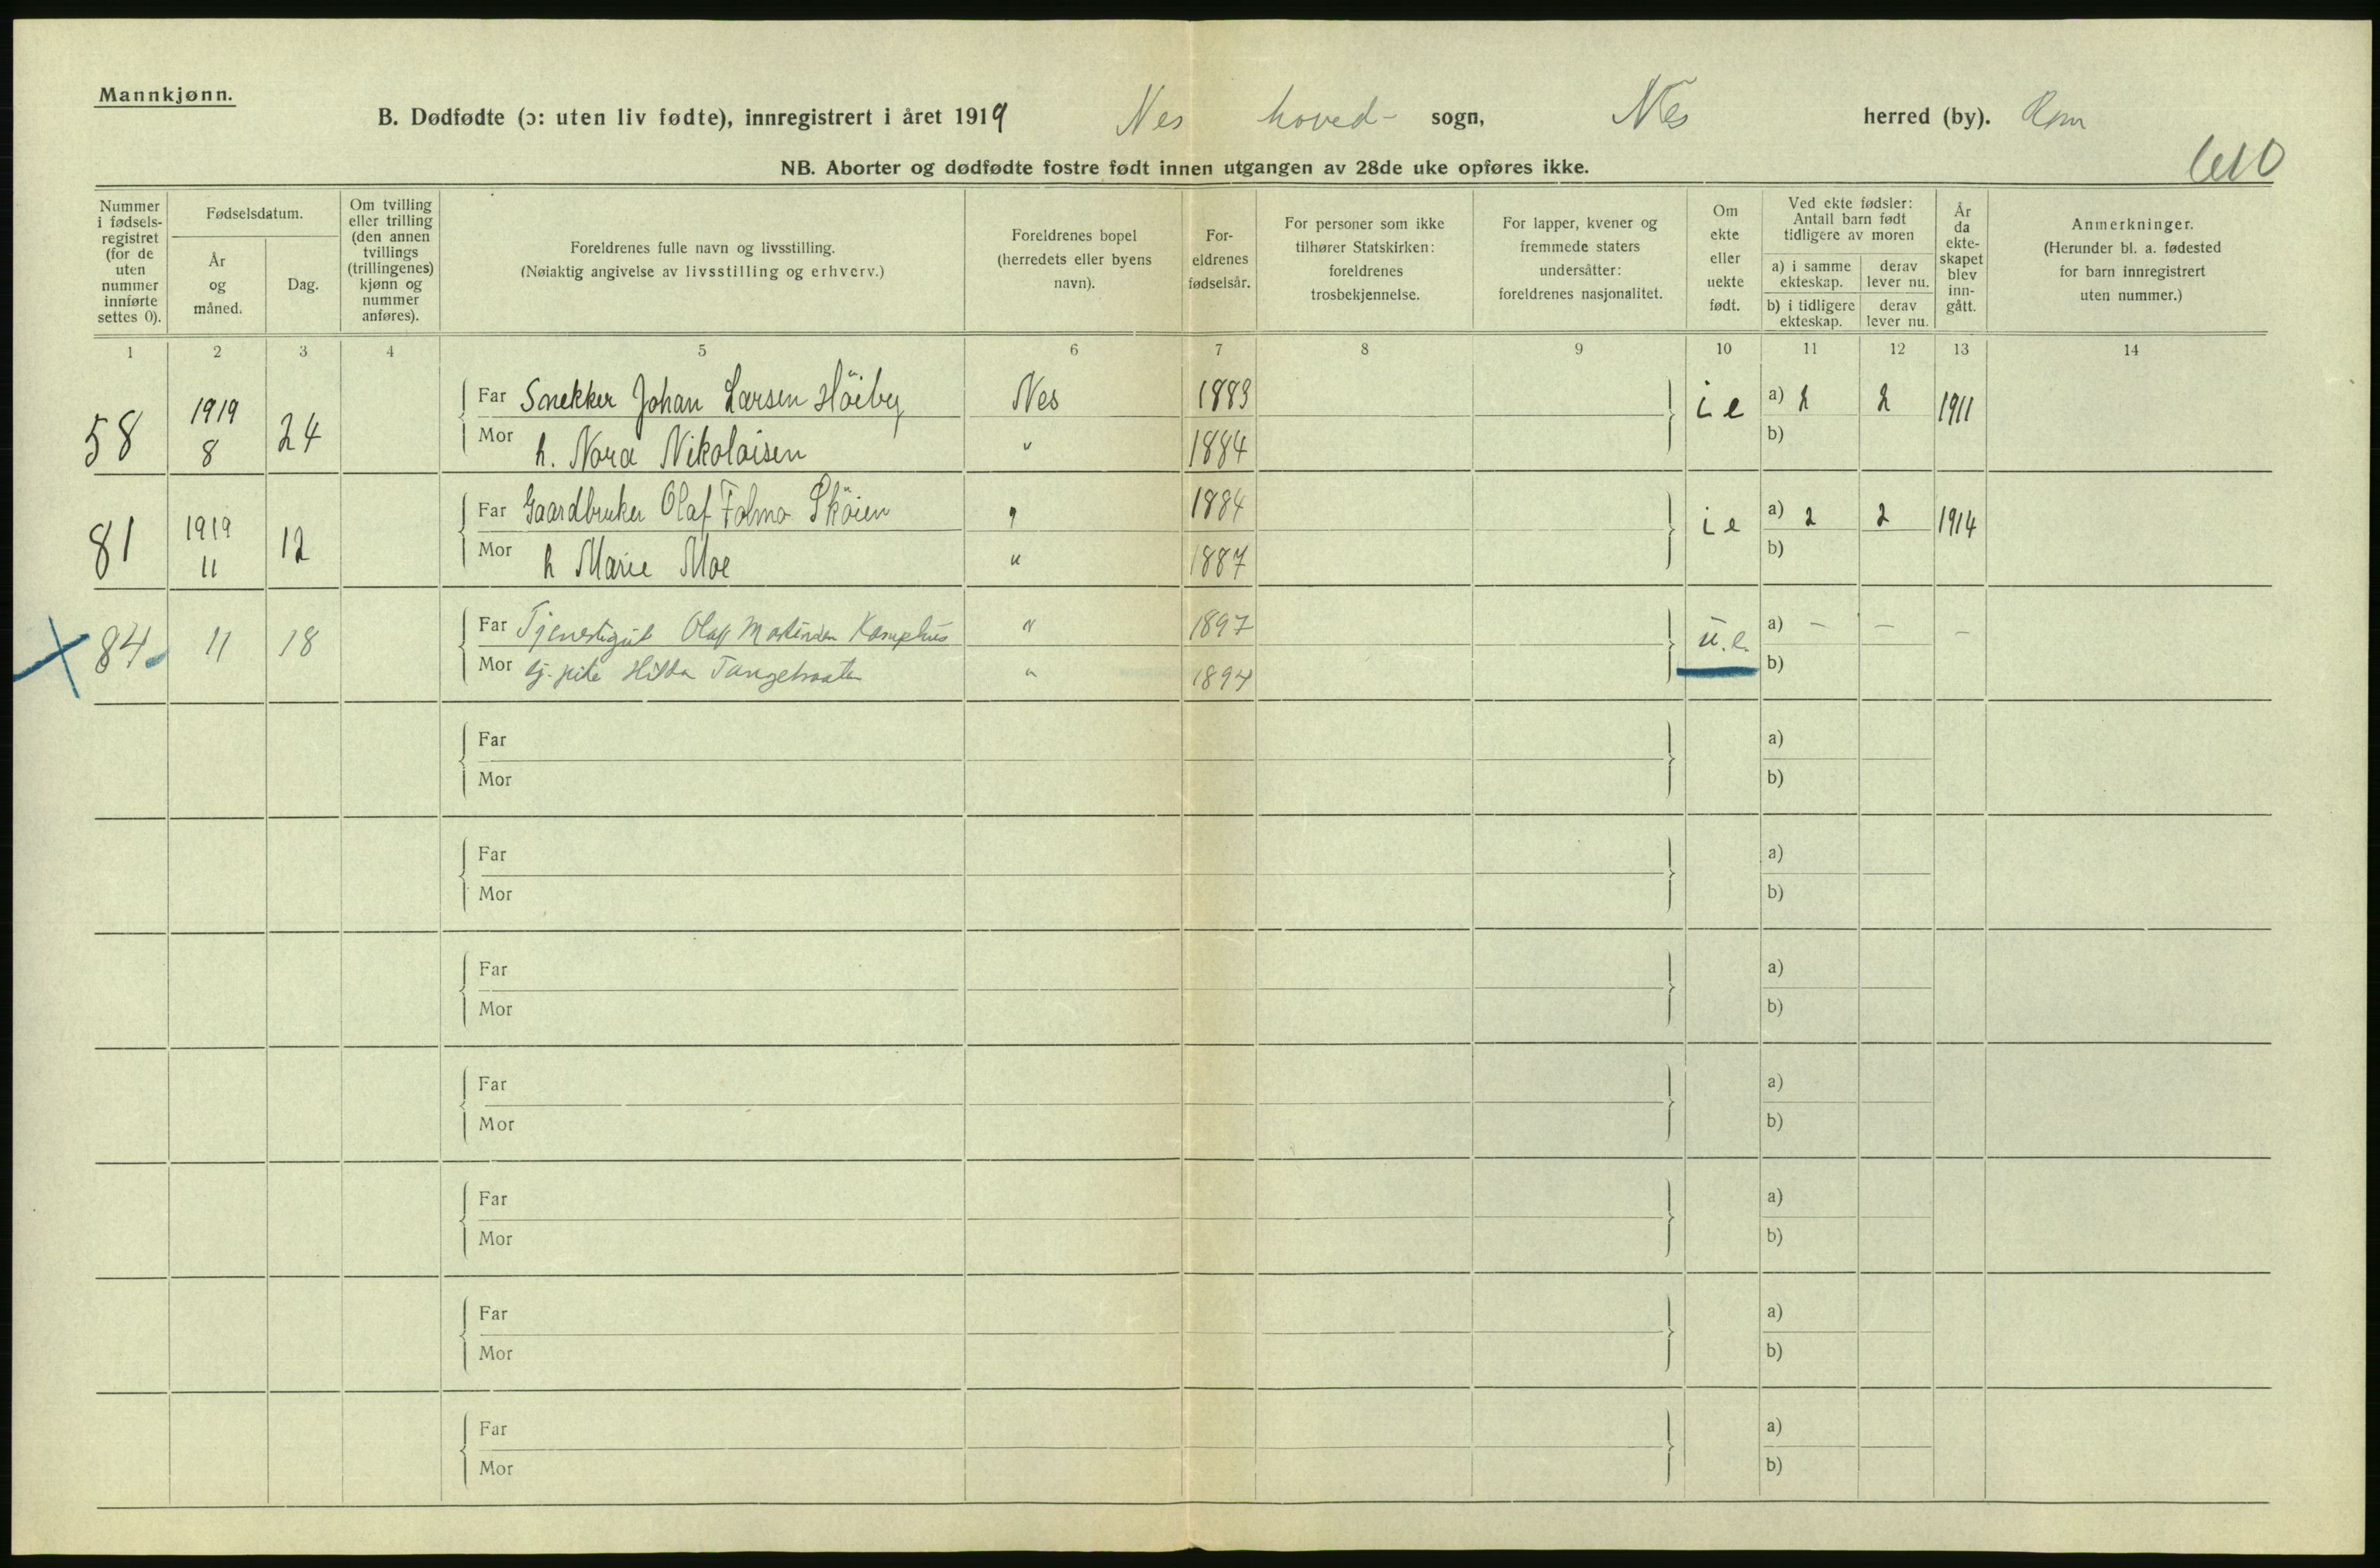 Mannkjønn.
B. Dødfødte (ɔ: uten liv fødte), innregistrert i året 1919 Nes hoved- sogn, Nes herred (by).
NB. Aborter og dødfødte fostre født innen utgangen av 28de uke opføres ikke.
Nummer i fødsels-registret (for de uten nummer innførte settes 0).
Fødselsdatum.
År og måned.
Dag.
Om tvilling eller trilling (den annen tvillings (trillingenes) kjønn og nummer anføres).
Foreldrenes fulle navn og livsstilling.
(Nøiaktig angivelse av livsstilling og erhverv.)
Foreldrenes bopel (herredets eller byens navn).
For-eldrenes fødselsår.
For personer som ikke tilhører Statskirken: foreldrenes trosbekjennelse.
For lapper, kvener og fremmede staters undersåtter: foreldrenes nasjonalitet.
Om ekte eller uekte født.
Ved ekte fødsler: Antall barn født tidligere av moren
a) i samme ekteskap.
derav lever nu.
b) i tidligere ekteskap.
derav lever nu.
År da ekte-skapet blev inn-gått.
Anmerkninger.
(Herunder bl. a. fødested for barn innregistrert uten nummer.)
1 2 3 4 5 6 7 8 9 10 11 12 13 14
58 1919 8 24 Far Snekker Johan Larsen Höiby Nes 1883 i e a) 2 2 1911
Mor h. Nora Nikolaisen " 1884 b)
81 1919 11 12 Far Gaardbruker Olaf Folmo Sköien " 1884 i e a) 2 2 1914
Mor h Marie Moe " 1887 b)
84 11 18 Far Tjenestegut Olaf " 1897 u. e. a) - - -
Mor tj. pike Hilda " 1894 b)
Far a)
Mor b)
Far a)
Mor b)
Far a)
Mor b)
Far a)
Mor b)
Far a)
Mor b)
Far a)
Mor b)
Far a)
Mor b)